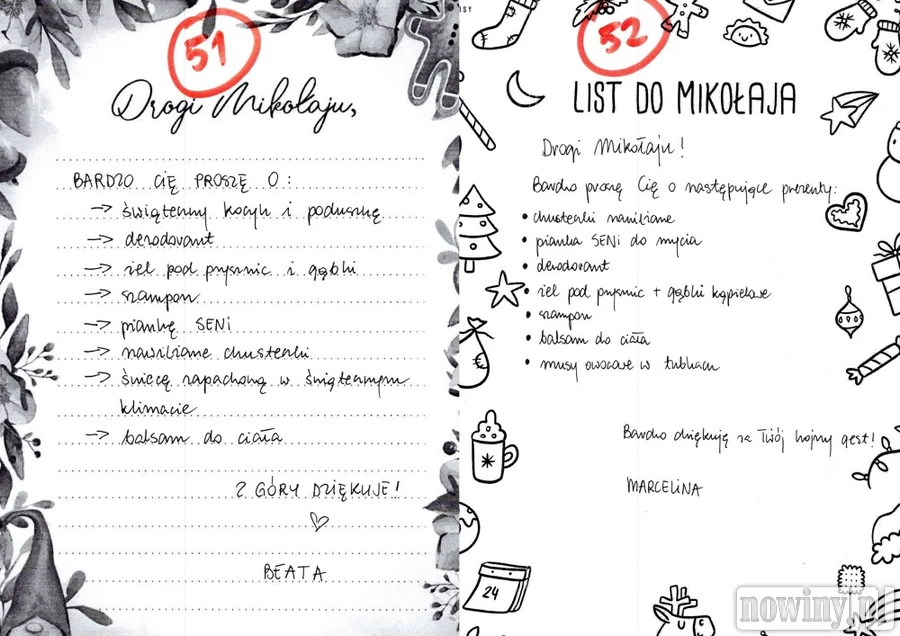 51
Drogi Mikołaju,
BARDZO CIĘ PROSZĘ O:
→ świąteczny kocyk i poduszkę
→ dezodorant
→ żel pod prysznic i gąbki
→ szampon
→ piankę SENI
→ nawilżane chusteczki
→ świecę zapachową w świątecznym
klimacie
→ balsam do ciała
Z GÓRY DZIĘKUJE!
BEATA
52
LIST DO MIKOŁAJA
Drogi Mikołaju!
Bardzo proszę Cię o następujące prezenty:
• chusteczki nawilżane
• pianka SENI do mycia
• dezodorant
• żel pod prysznic + gąbki kąpielowe
• szampon
• balsam do ciała
• musy owocowe w tubkach
Bardzo dziękuję za Twój hojny gest!
MARCELINA
24
nowiny.pl